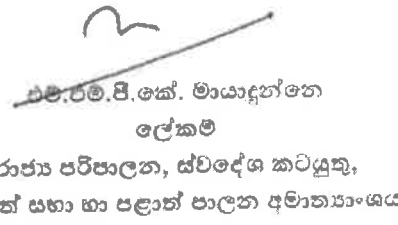 එම්.එම්.පී.කේ. මායාදුන්නෙ
ලේකම්
රාජ්‍ය පරිපාලන, ස්වදේශ කටයුතු,
ත් සභා හා පළාත් පාලන අමාත්‍යාංශය